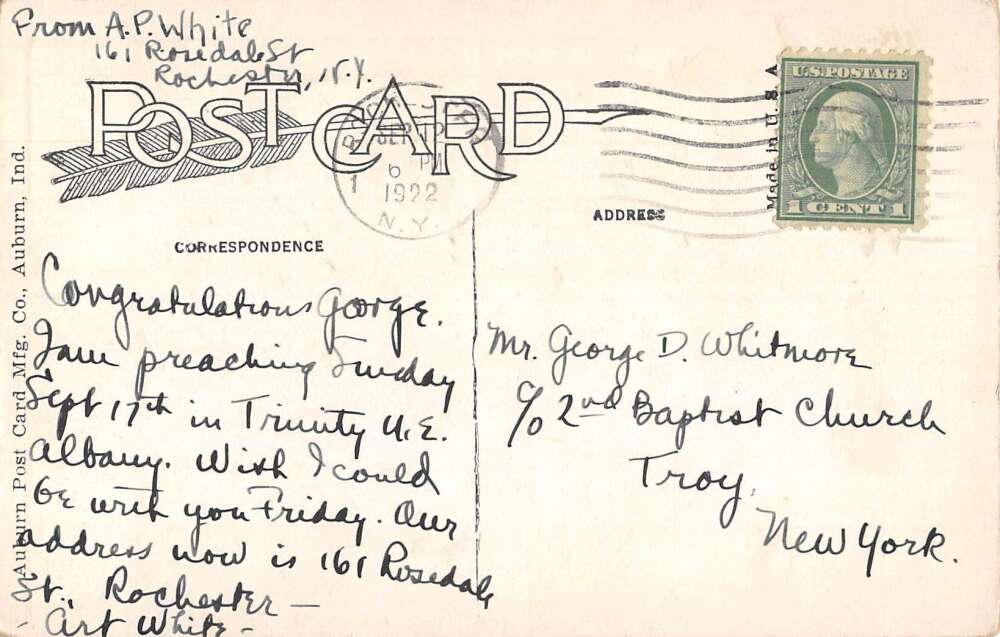 From A.P. White
161 Rosedale St
Rochester, N.Y.
POST CARD
6 PM
1922
N.Y.
1
Made in U.S.A
U.S. POSTAGE
1 CENT 1
ADDRESS
CORRESPONDENCE
Auburn Post Card Mfg. Co., Auburn, Ind.
Congratulations George.
I am preaching Sunday
Sept 17th in Trinity M.E.
Albany. Wish I could
be with you Friday. Our
address now is 161 Rosedale
St., Rochester —
Art White -
Mr. George D. Whitmore
c/o 2nd Baptist Church
Troy,
New York.